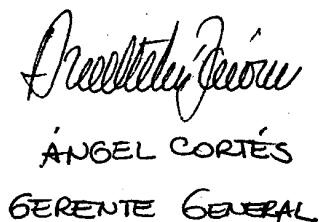 ÁNGEL CORTÉS
GERENTE GENERAL